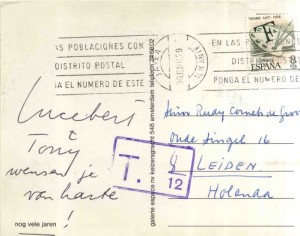 AS POBLACIONES CON
DISTRITO POSTAL
GA EL NUMERO DE ESTE
JAVEA
EN LAS POBLACI
DISTR
PONGA EL NUMERO DE ES
ESPAÑA
CORREOS
F
8
Lucebert
Tony
wensen je
van harte
!
nog vele jaren
galerie espace nv keizersgracht 548 amsterdam
T.
12
Rudy Cornets de Groot
Oude Singel 16
LEIDEN
Holanda